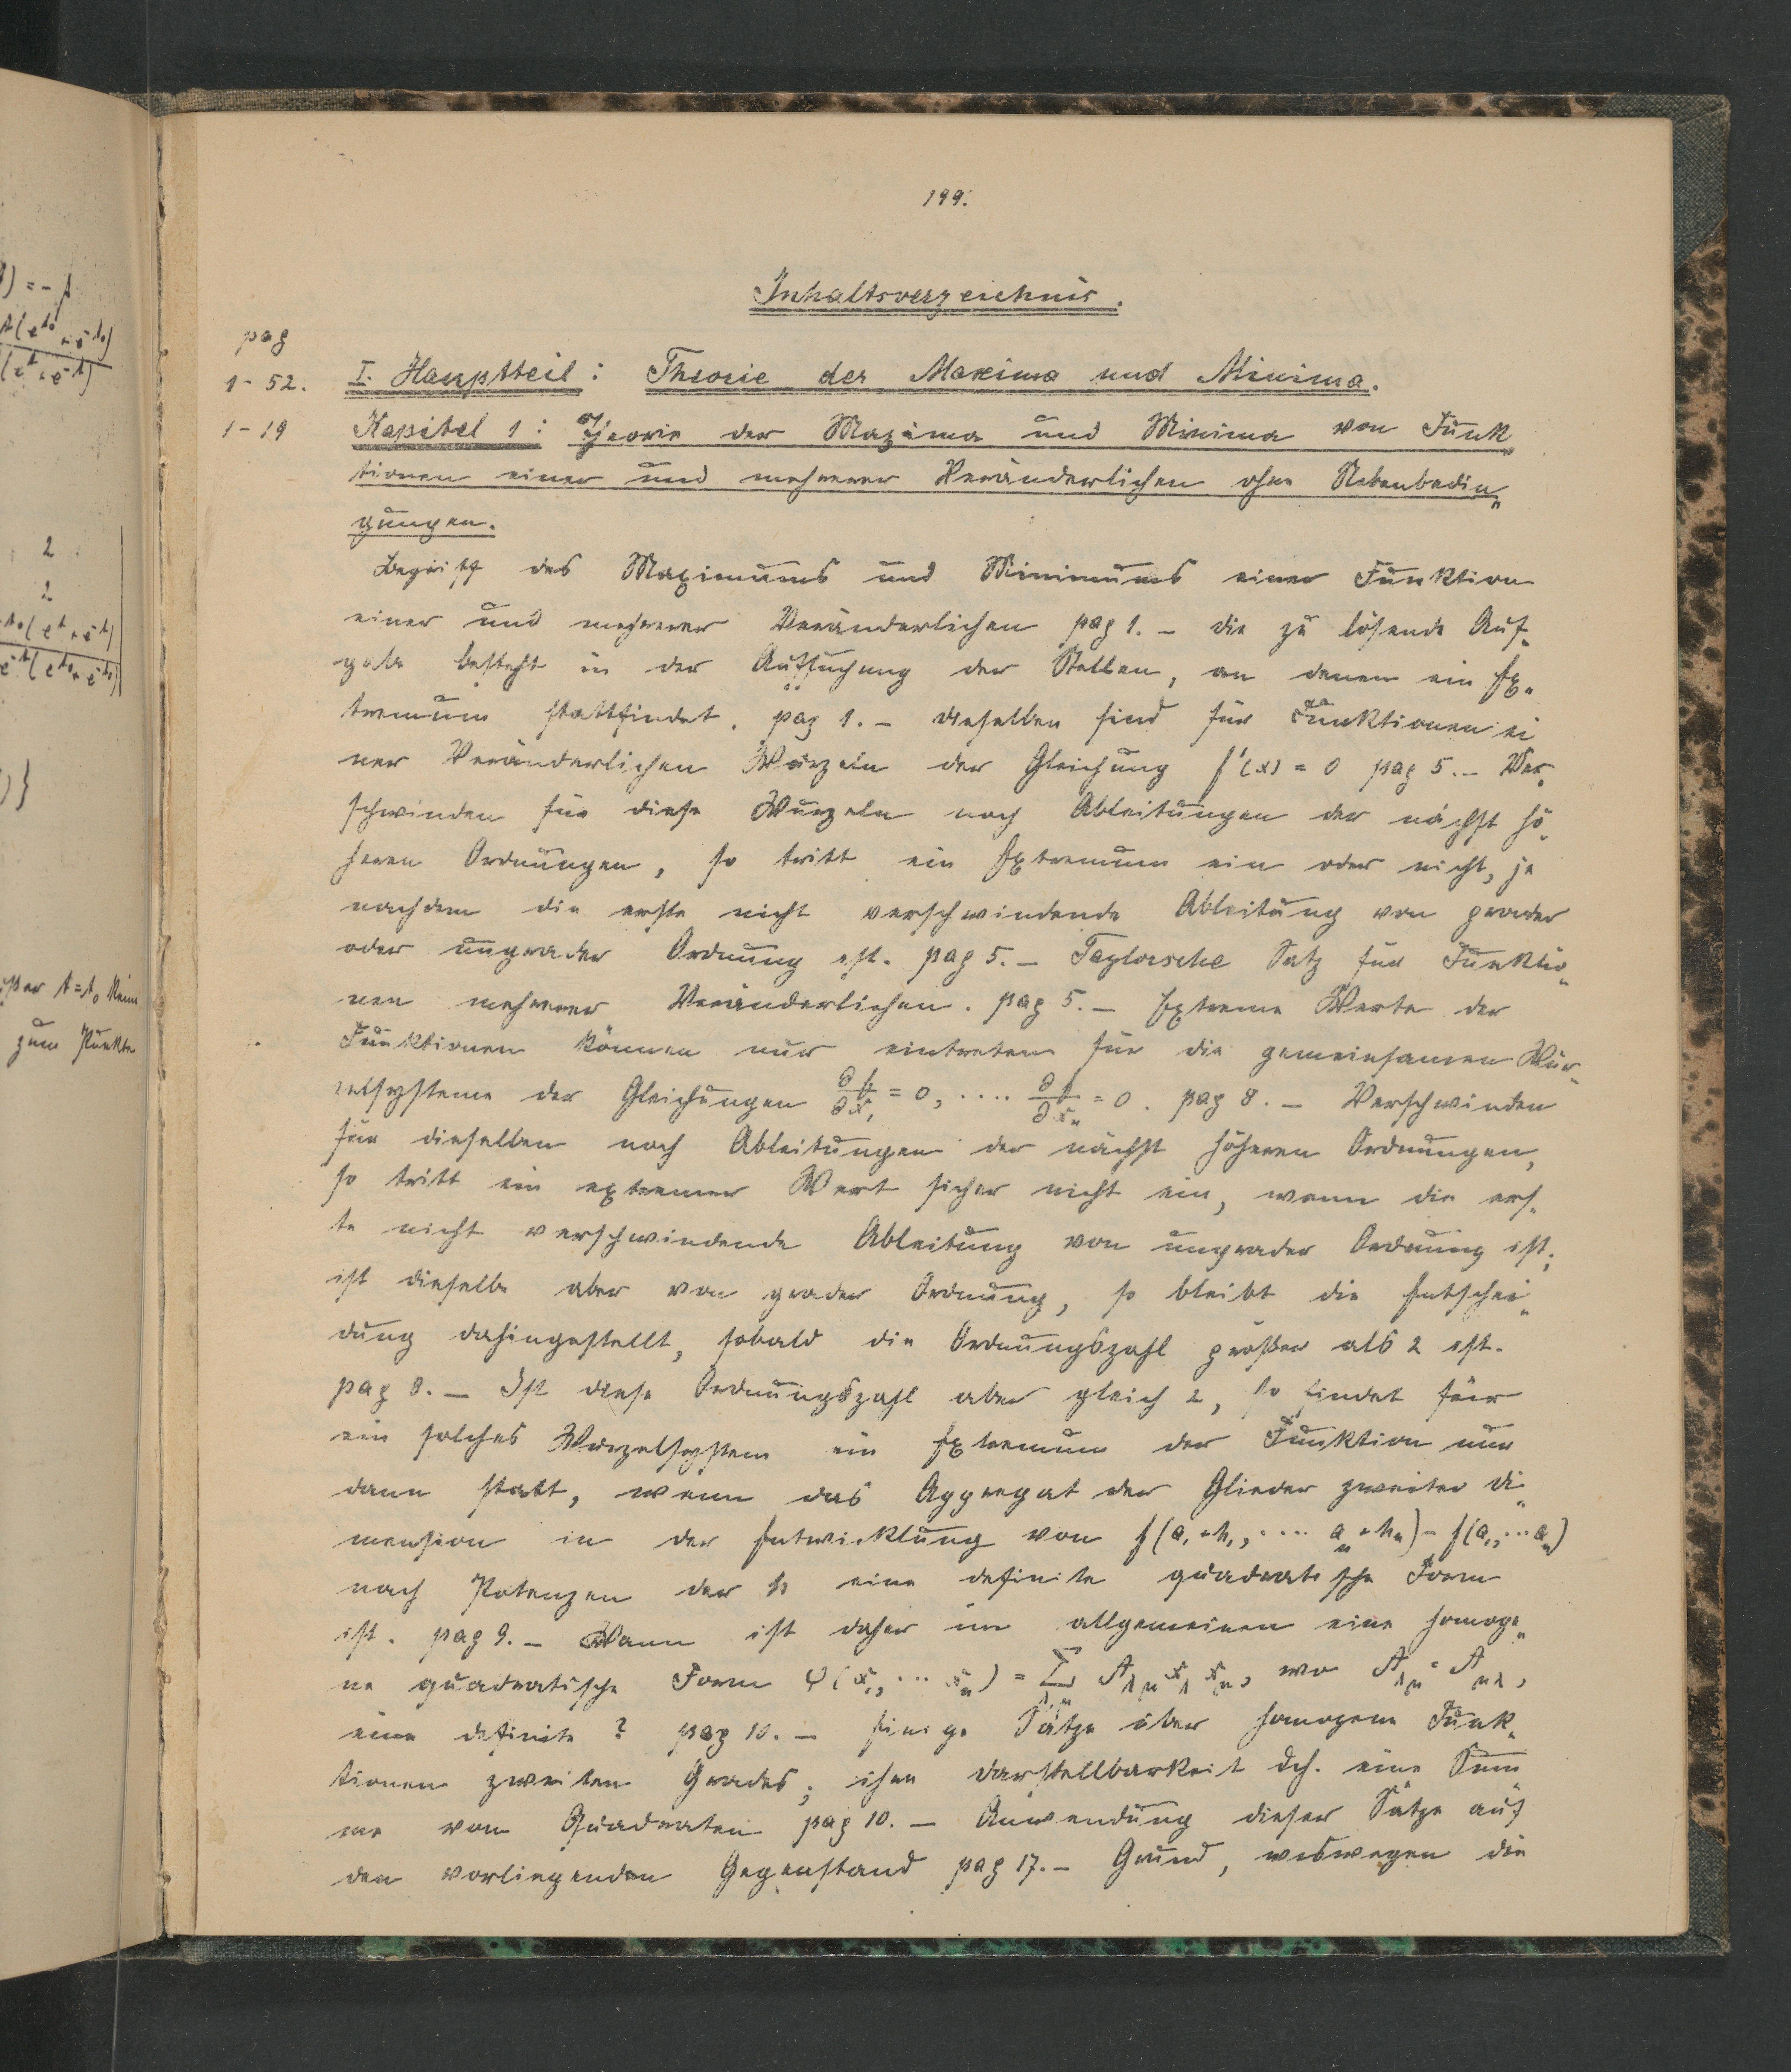 199.
Inhaltsverzeichnis.
pag
1-52. I. Hauptteil: Theorie der Maxima und Minima.
1-19 Kapitel 1: Theorie der Maxima und Minima von Funk„
tionen einer und mehrerer Veränderlichen ohne Nebenbedin„
gungen.
Begriff des Maximums und Minimums einer Funktion
einer und mehrerer Veränderlichen pag 1. – die zu lösende Auf„
gabe besteht in der Aufsuchung der Stellen, an denen ein Ex„
tremum stattfindet. pag 1. – dieselben sind für Funktionen ei
ner Veränderlichen Wurzeln der Gleichung f'(x) = 0 pag 5. – Ver„
schwinden für diese Wurzeln noch Ableitungen der nächst hö„
heren Ordnungen, so tritt ein Extremum ein oder nicht, je
nachdem die erste nicht verschwindende Ableitung von grader
oder ungrader Ordnung ist. pag 5. – Taylorsche Satz für Funktio„
nen mehrerer Veränderlichen. pag 5. – Extreme Werte der
Funktionen können nur eintreten für die gemeinsamen Wur„
zelsysteme der Gleichungen ∂f/∂x₁ = 0, .... ∂f/∂xₙ = 0. pag 8. – Verschwinden
für dieselben noch Ableitungen der nächst höheren Ordnungen,
so tritt ein extremer Wert sicher nicht ein, wenn die ers„
te nicht verschwindende Ableitung von ungrader Ordnung ist;
ist dieselbe aber von grader Ordnung, so bleibt die Entschei„
dung dahingestellt, sobald die Ordnungszahl größer als 2 ist.
pag 8. – Ist diese Ordnungszahl aber gleich 2, so findet für
ein solches Wurzelsystem ein Extremum der Funktion nur
dann statt, wenn das Aggregat der Glieder zweiter Di„
mension in der Entwicklung von f(a₁+h₁, .... aₙ+hₙ) – f(a₁, ... aₙ)
nach Potenzen der h eine definite quadratische Form
ist. pag 9. – Wann ist daher im allgemeinen eine homoge„
ne quadratische Form φ(x₁, ... xₙ) = Σ_{λ,μ} A_{λμ} x_λ x_μ, wo A_{λμ} = A_{μλ},
eine definite? pag 10. – Einige Sätze über homogene Funk„
tionen zweiten Grades; ihre Darstellbarkeit dch. eine Sum„
me von Quadraten pag 10. – Anwendung dieser Sätze auf
den vorliegenden Gegenstand pag 17. – Grund, weswegen die